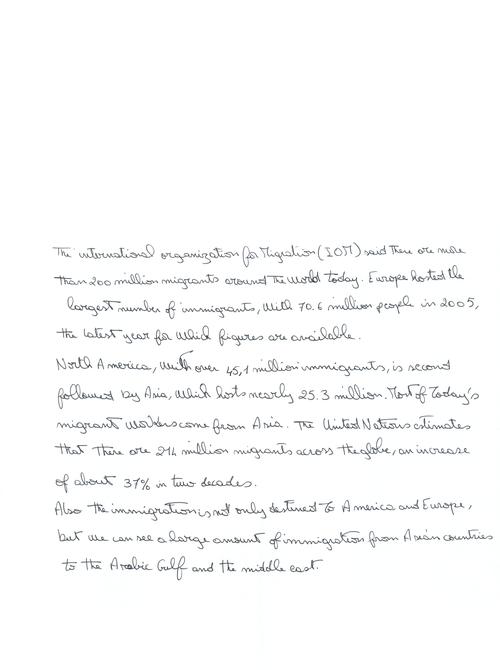 The international organization for Migration (IOM) said there are more
than 200 million migrants around the world today. Europe hosted the
largest number of immigrants, with 70.6 million people in 2005,
the latest year for which figures are available.
North America, with over 45,1 million immigrants, is second
followed by Asia, which hosts nearly 25.3 million. Most of Today's
migrant workers come from Asia. The United Nations estimates
that there are 214 million migrants across the globe, an increase
of about 37% in two decades.
Also the immigration is not only destined to America and Europe,
but we can see a large amount of immigration from Asian countries
to the Arabic Gulf and the middle east.